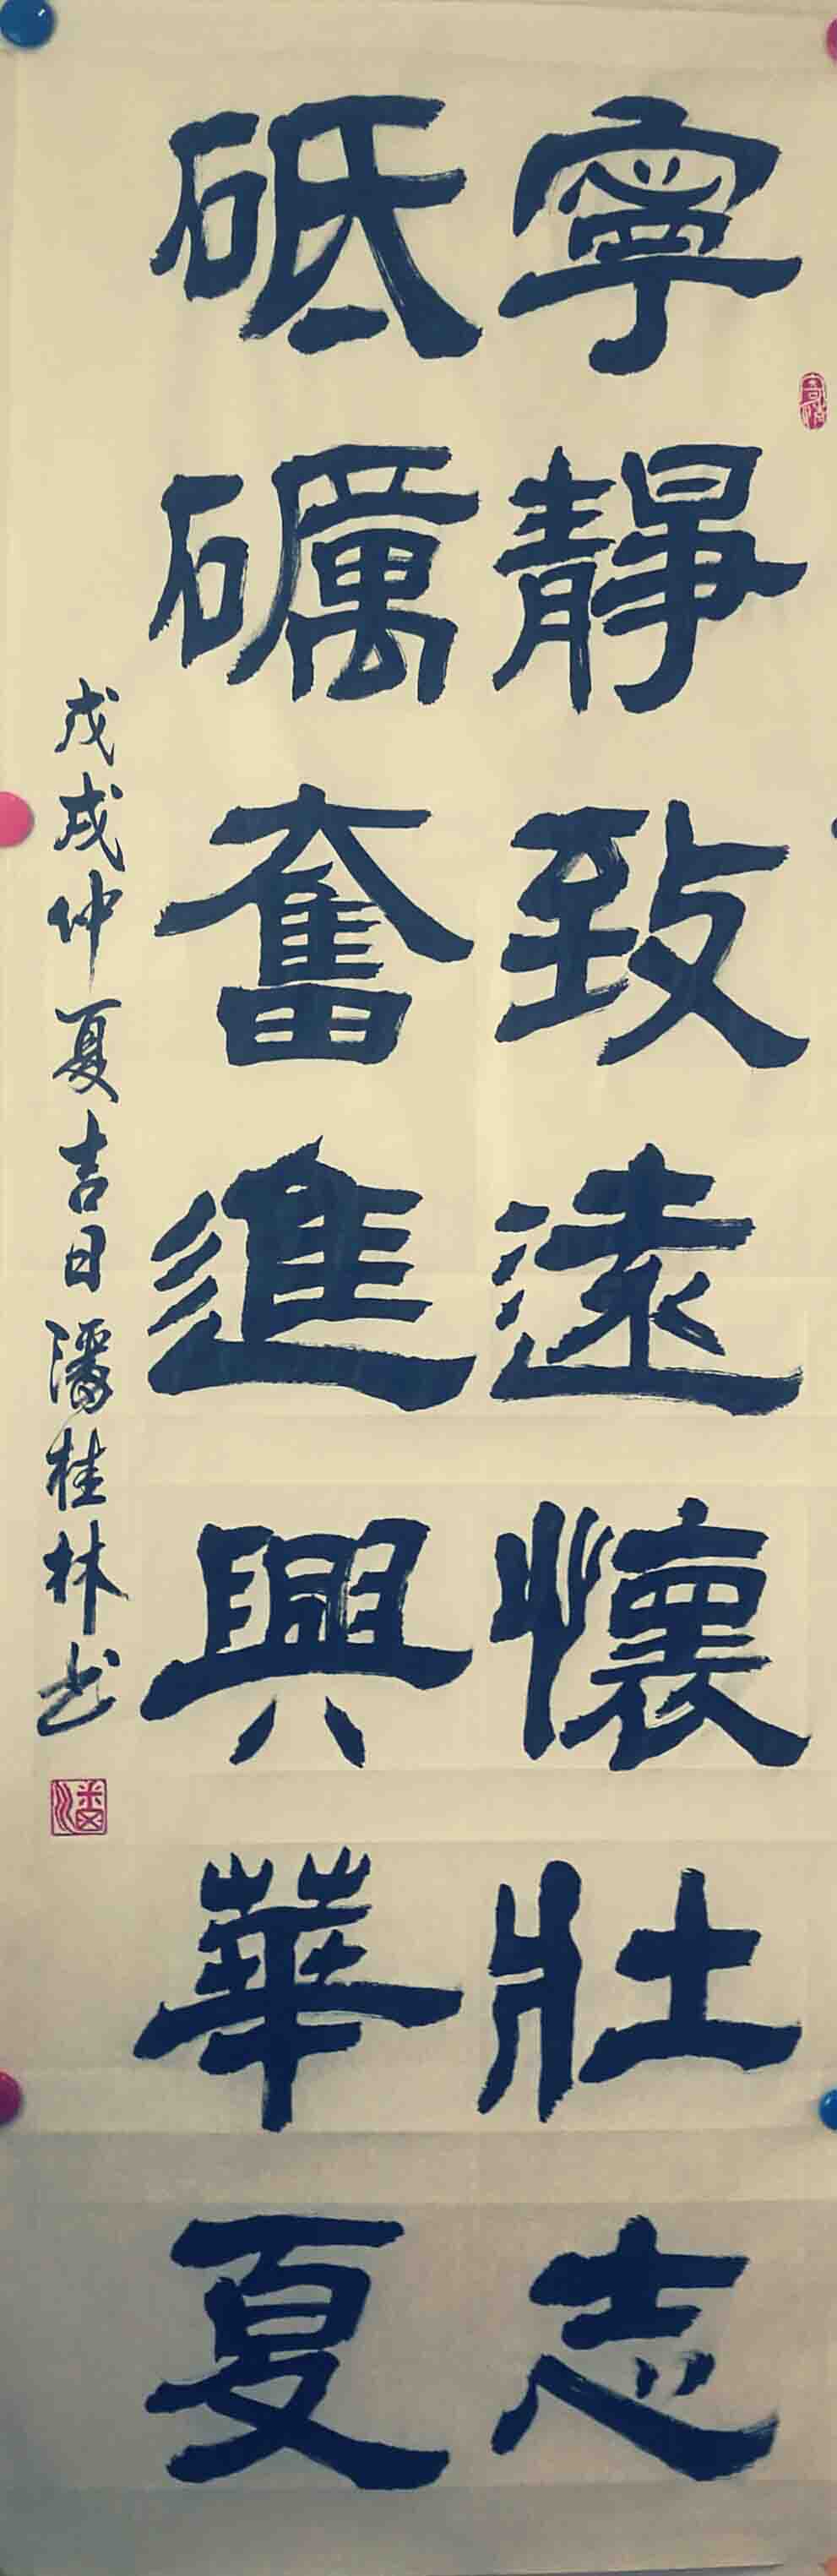 寧靜致遠懷壯志
砥礪奮進興華夏
戊戌仲夏吉日潘桂林书
潘